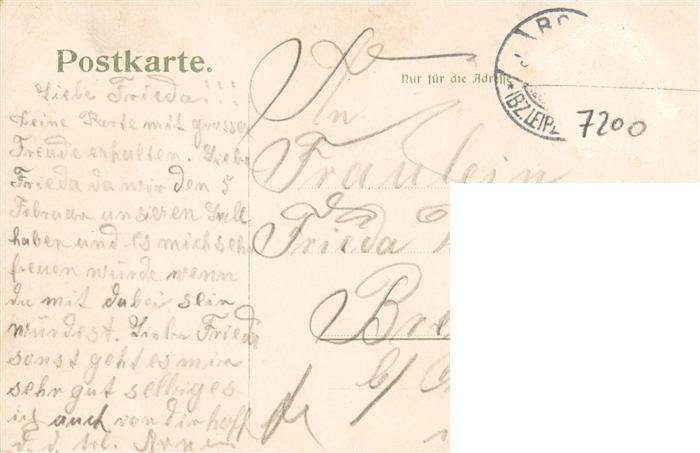 Postkarte.
Nur für die Adresse
Liebe Frieda!!!
Deine Karte mit grosser
Freude erhalten. Liebe
Frieda da wir den 5
Februar unseren Ball
haben und es mich sehr
freuen würde wenn
du mit dabei sein
würdest. Liebe Frieda
sonst geht es mir
sehr gut selbiges
ich auch von dir hoff
An
Fräulein
Frieda
(BZ LEIPZ
7200